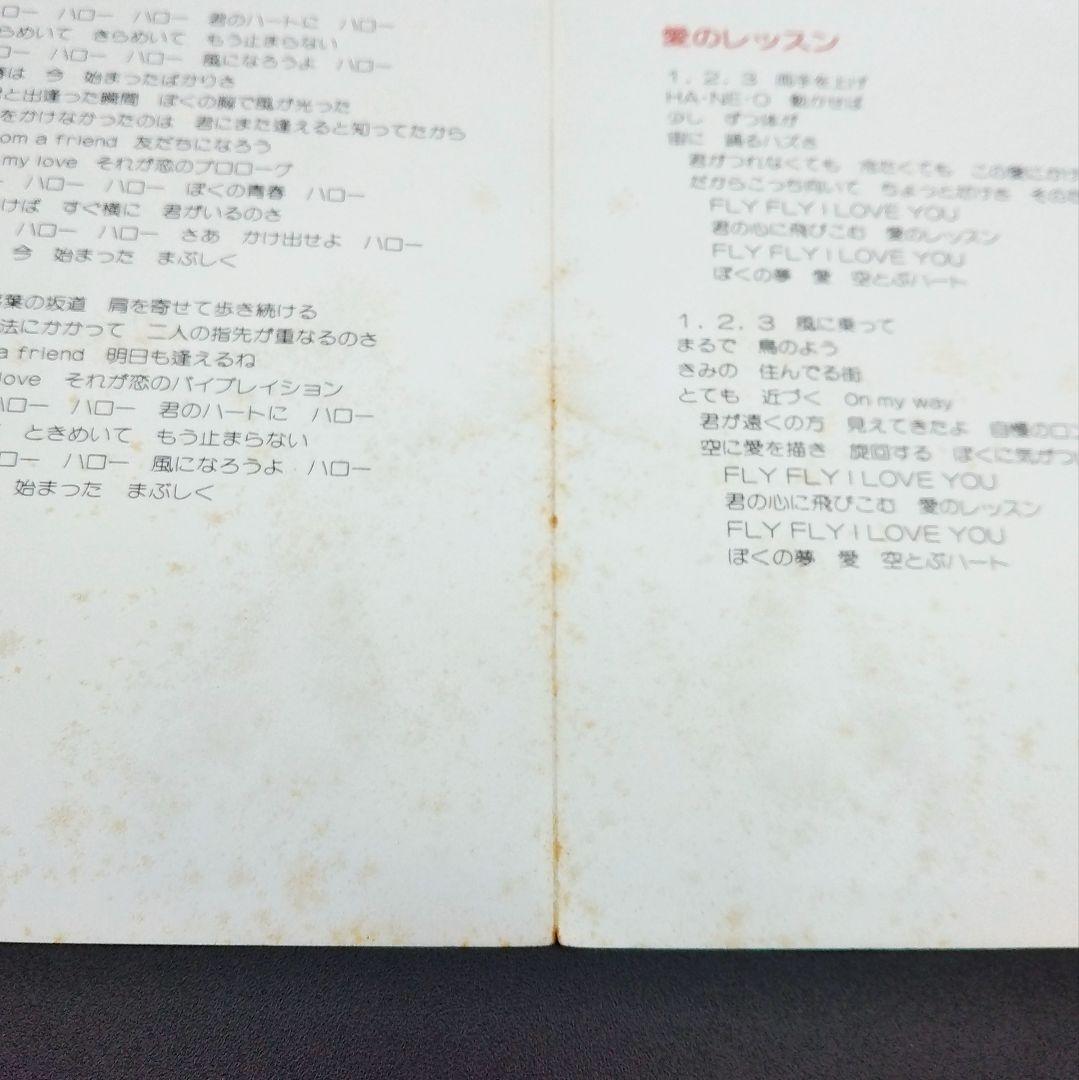 ロー ハロー ハロー 君のハートに ハロー
らめいて きらめいて もう止まらない
ロー ハロー ハロー 風になろうよ ハロー
春は 今 始まったばかりさ
君と出逢った瞬間 ぼくの胸で風が光った
をかけなかったのは 君にまた逢えると知ってたから
om a friend 友だちになろう
my love それが恋のプロローグ
ー ハロー ハロー ぼくの青春 ハロー
けば すぐ横に 君がいるのさ
ハロー ハロー さあ かけ出せよ ハロー
今 始まった まぶしく
葉の坂道 肩を寄せて歩き続ける
法にかかって 二人の指先が重なるのさ
a friend 明日も逢えるね
love それが恋のバイブレイション
ハロー ハロー 君のハートに ハロー
ときめいて もう止まらない
ロー ハロー 風になろうよ ハロー
始まった まぶしく
愛のレッスン
1. 2. 3 両手を上げ
HA・NE・O 動かせば
少し ずつ体が
宙に 踊るハズさ
君がつれなくても 冷たくても この愛にかけ
だからこっち向いて ちょっとだけさ その
FLY FLY I LOVE YOU
君の心に飛びこむ 愛のレッスン
FLY FLY I LOVE YOU
ぼくの夢 愛 空とぶハート
1. 2. 3 風に乗って
まるで 鳥のよう
きみの 住んでる街
とても 近づく On my way
君が遠くの方 見えてきたよ 自慢のロン
空に愛を描き 旋回する ぼくに気がつ
FLY FLY I LOVE YOU
君の心に飛びこむ 愛のレッスン
FLY FLY I LOVE YOU
ぼくの夢 愛 空とぶハート